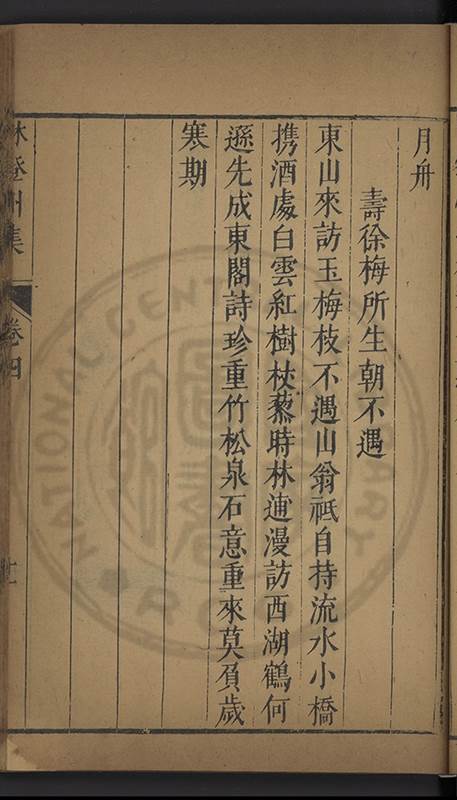 月舟
壽徐梅所生朝不遇
東山來訪玉梅枝不遇山翁祗自持流水小橋
携酒處白雲紅樹杖藜時林逋漫訪西湖鶴何
遜先成東閣詩珍重竹松泉石意重來莫負歲
寒期
林登州集
卷四